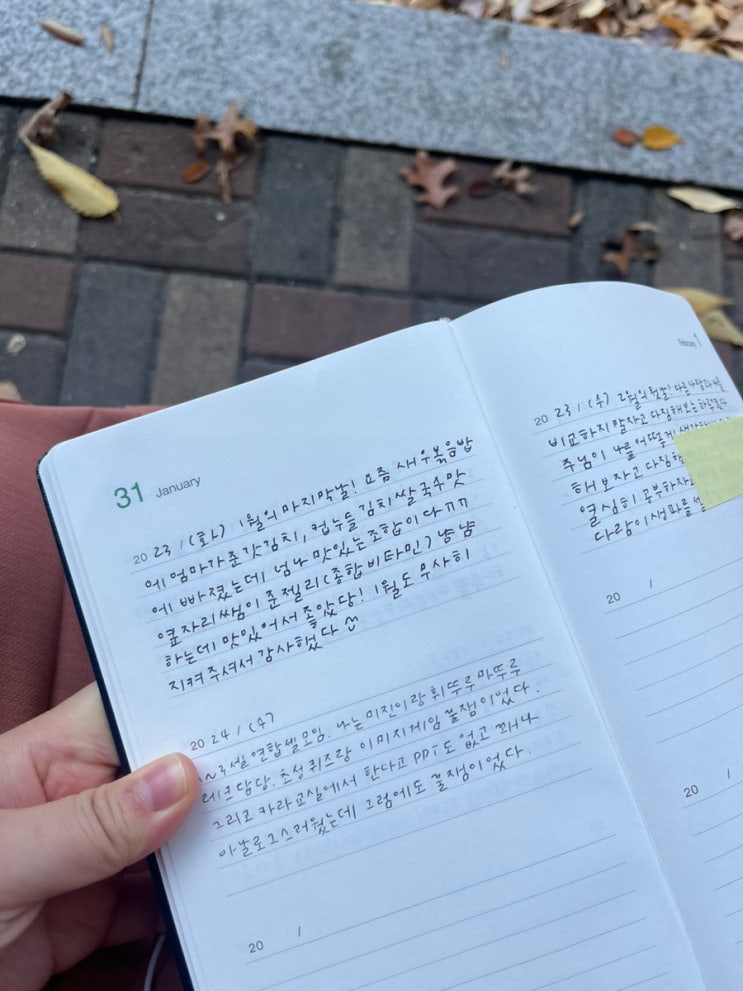 31 January
2023 / (화) 1월의 마지막날! 요즘 새우볶음밥
에 엄마가 준 갓김치, 컵누들 김치쌀국수맛
에 빠졌는데 넘나 맛있는 조합이다ㅠㅠ
옆자리쌤이 준 젤리(종합비타민) 냠냠
하는데 맛있어서 좋았당! 1월도 무사히
지켜주셔서 감사했다
2024 / (수)
1~3셀 연합셀모임. 나는 미진이랑 휘뚜루마뚜루
레크담당. 초성퀴즈랑 이미지게임 꿀잼이었다.
그리고 카라교실에서 한다고 PPT도 없고 꽤나
아날로그스러웠는데 그럼에도 꿀잼이었다.
20 /
February 1
2023 / (수) 2월의 첫날! 다른사람과 나를
비교하지 말자고 다짐해보는 하루였다
주님이 나를 어떻게
해보자고 다짐
열심히 공부하자
다람이 생파를
20 /
20 /